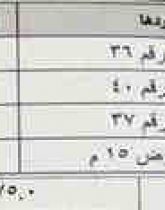 ردها
رقم ٣٦
رقم ٤٠
رقم ٣٧
ض ١٥ م
٧٥,٠